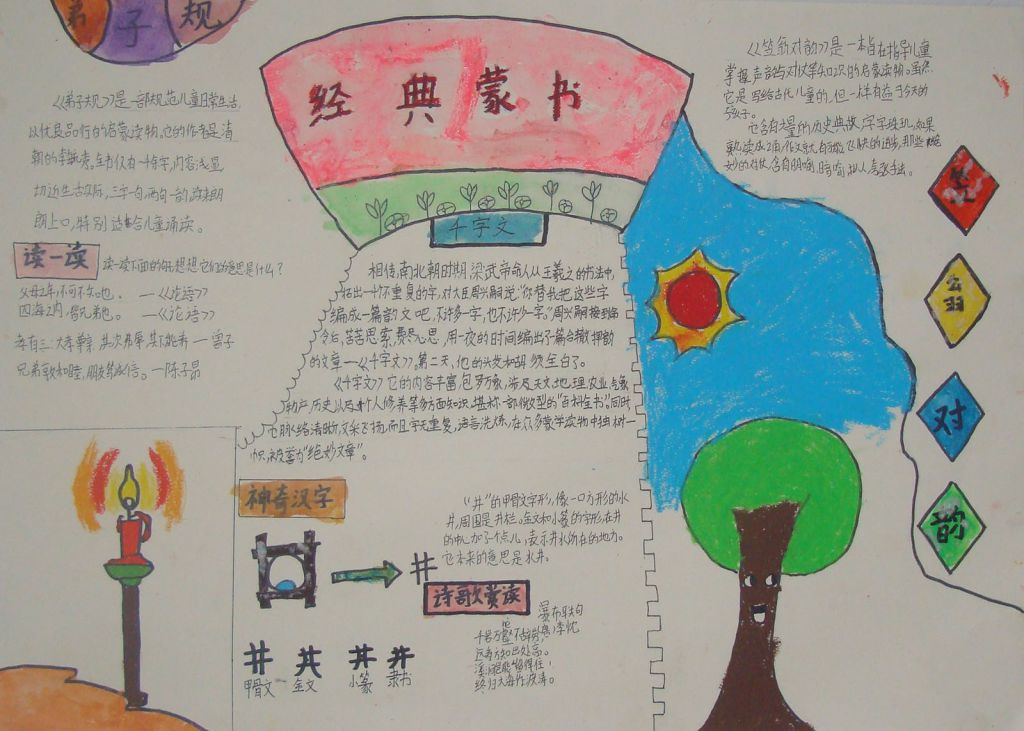 弟子规
《弟子规》是一部规范儿童日常生活,
以优良品行的启蒙读物。它的作者是清
朝的李毓秀。全书仅有一千余字,内容浅显,
切近生活实际,三字一句,两句一韵,读来朗
朗上口,特别适合儿童诵读。
读一读
读一读下面的句子,想想它们的意思是什么?
父母之年,不可不知也。 —《论语》
四海之内,皆兄弟也。 —《论语》
孝有三:大孝尊亲,其次弗辱,其下能养 — 曾子
兄弟敦和睦,朋友笃诚信。—陈子昂
经典蒙书
千字文
相传,南北朝时期,梁武帝命人从王羲之的书法中,
拓出一千个不重复的字,对大臣周兴嗣说:“你替我把这些字
编成一篇韵文吧,不许多一字,也不许少一字。”周兴嗣接到命
令后,苦苦思索,费尽心思,用一夜的时间编出了一篇合辙押韵
的文章——《千字文》。第二天,他的头发和胡须全白了。
《千字文》它的内容丰富,包罗万象,涉及天文、地理、农业、气象
物产、历史以及个人修养等方面知识,堪称一部微型的“百科全书”。同时
它脉络清晰,文采飞扬,而且字无重复,语言洗炼,在众多蒙学读物中独树一
帜,被誉为“绝妙文章”。
神奇汉字
井
甲骨文
金文
小篆
隶书
“井”的甲骨文字形,像一口方形的水
井,周围是井栏。金文和小篆的字形,在井
的中心加了个点儿,表示井水所在的地方。
它本来的意思是水井。
诗歌赏读
瀑布联句
李忱
千岩万壑不辞劳,
远看方知出处高。
溪涧岂能留得住,
终归大海作波涛。
《笠翁对韵》是一本旨在指导儿童
掌握声韵与对仗等知识的启蒙读物。虽然
它是写给古代儿童的,但一样有益于今天的
孩子。
它含有大量的历史典故,字字珠玑,如果
熟读成诵,作文就有可能飞快的进步,那些
妙的对仗,含有明喻,暗喻,拟人,夸张手法。
笠
翁
对
韵